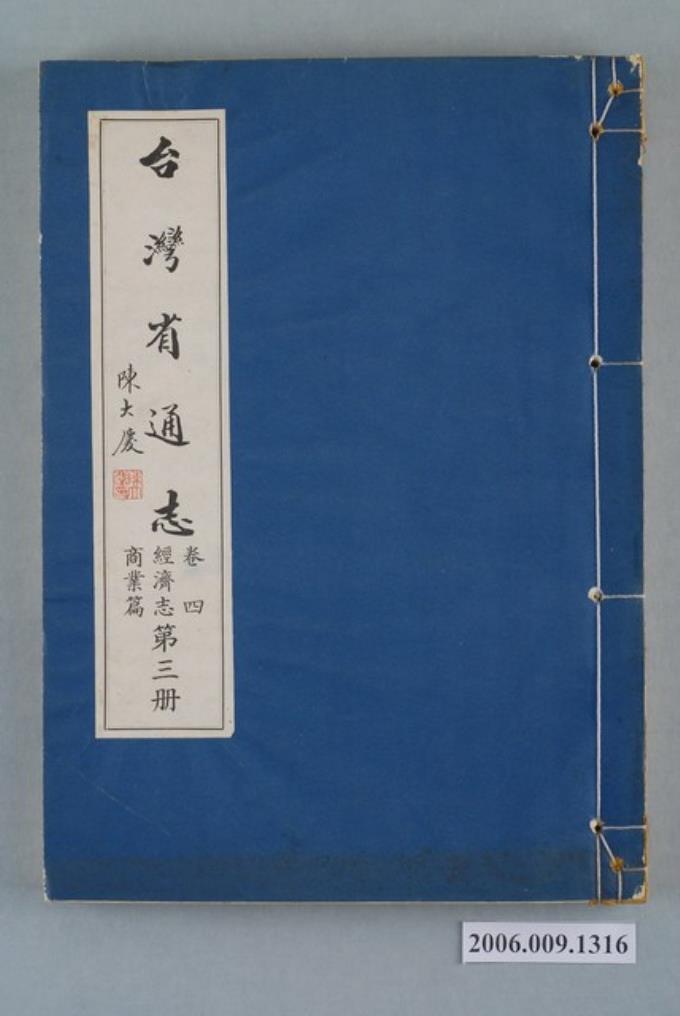 台灣省通志
陳大慶
卷四
經濟志
商業篇
第三册
2006.009.1316